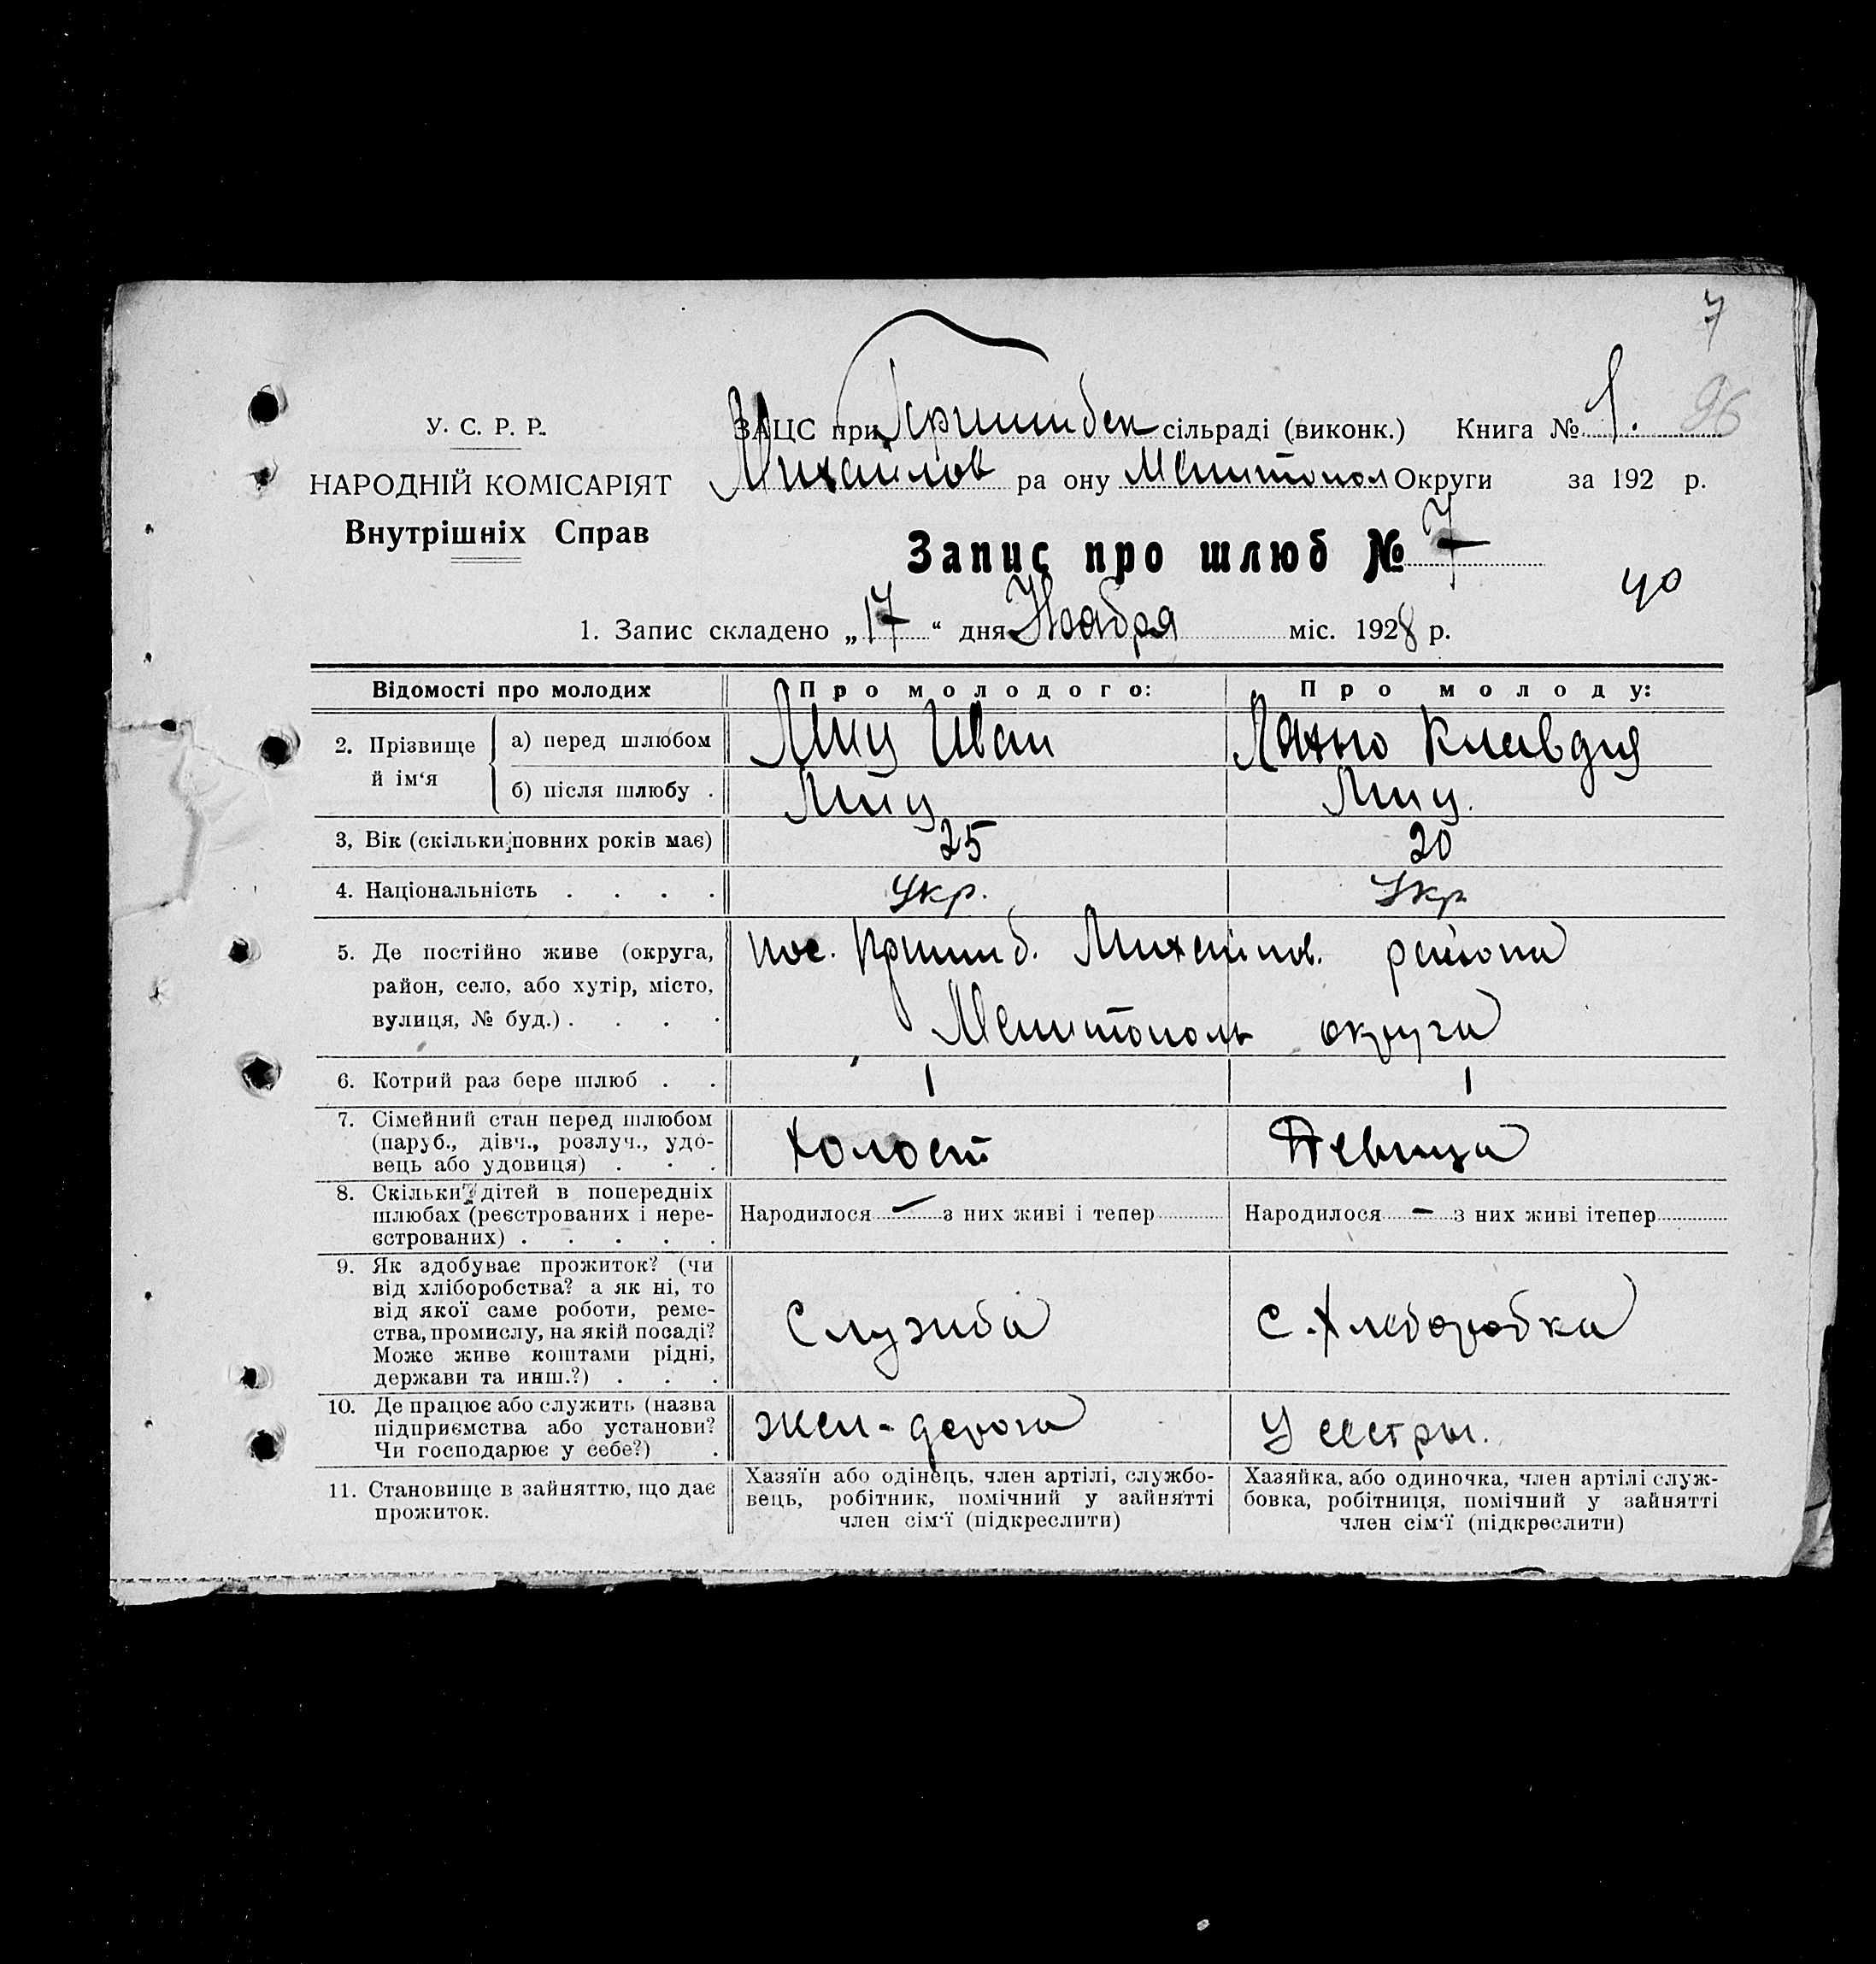 7
96
У. С. Р. Р.
НАРОДНІЙ КОМІСАРІЯТ
Внутрішніх Справ
ЗАЦС при Пришибск сільраді (виконк.) Книга № 1.
Михайлов ра ону Мелитопол Округи за 192 р.
Запис про шлюб № 7
40
1. Запис складено „17“ дня Ноября міс. 1928 р.
Відомості про молодих Про молодого: Про молоду:
2. Прізвище й ім‘я
а) перед шлюбом Лиц Иван Лахно Клавдия
б) після шлюбу . Лиц Лиц.
3, Вік (скільки повних років має) 25 20
4. Національність . . . . Укр. Укр
5. Де постійно живе (округа, пос. Пришиб. Михайлов. района
район, село, або хутір, місто,
вулиця, № буд.) . . . . Мелитополь округа
6. Котрий раз бере шлюб . . 1 1
7. Сімейний стан перед шлюбом
(паруб., дівч., розлуч., удо- Холост Девица
вець або удовиця) . . .
8. Скільки дітей в попередніх
шлюбах (реєстрованих і нере- Народилося — з них живі і тепер Народилося — з них живі ітепер
єстрованих) . . . . .
9. Як здобуває прожиток? (чи
від хліборобства? а як ні, то
від якої саме роботи, реме- Служба С. Хлеборобка
ства, промислу, на якій посаді?
Може живе коштами рідні,
держави та инш.?) . . .
10. Де працює або служить (назва
підприємства або установи? Жел-дорога У сестры.
Чи господарює у себе?) .
11. Становище в зайняттю, що дає
прожиток.
Хазяїн або одінець, член артілі, службо-
вець, робітник, помічний у зайнятті
член сім‘ї (підкреслити)
Хазяйка, або одиночка, член артілі служ-
бовка, робітниця, помічний у зайнятті
член сім‘ї (підкреслити)